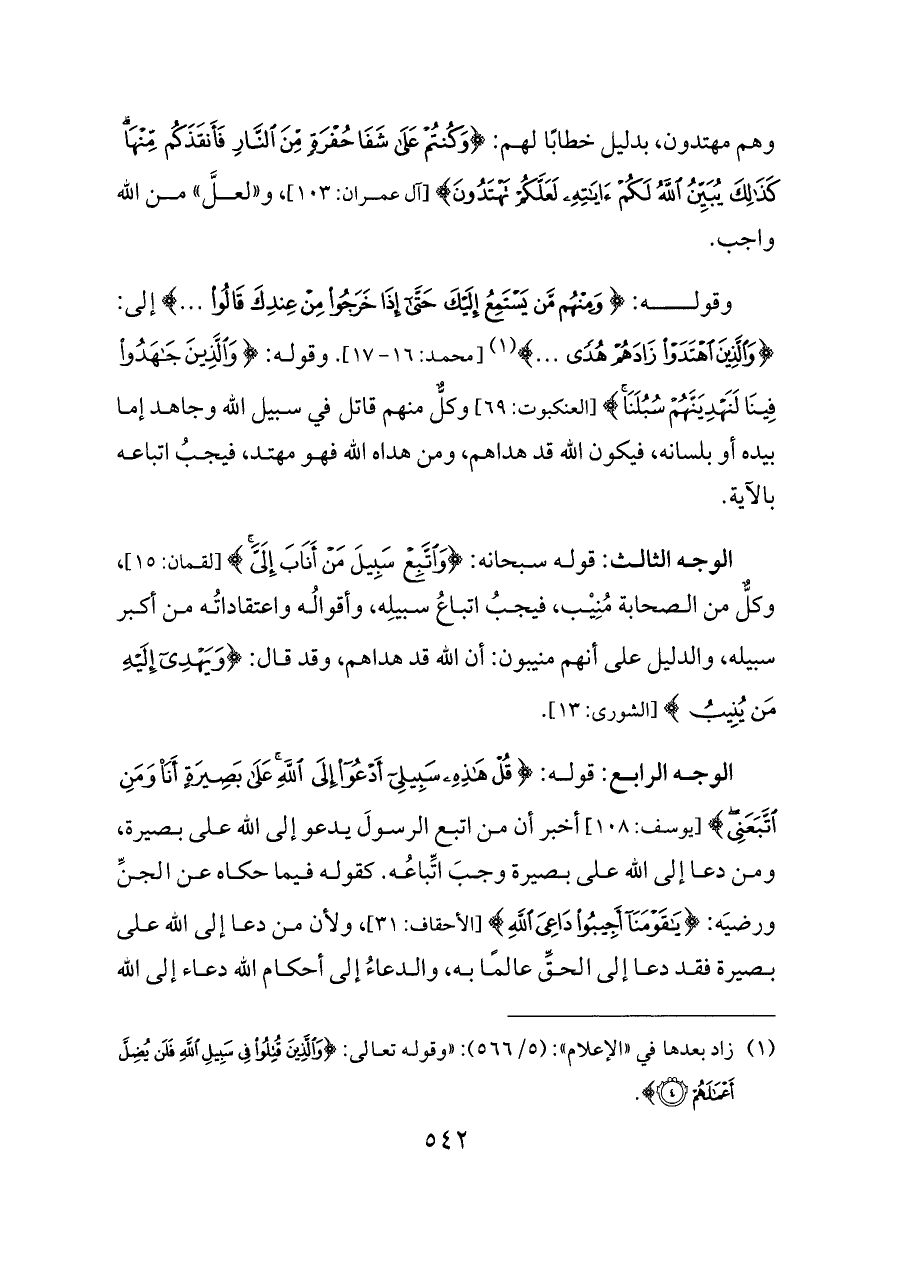 وهم مهتدون، بدليل خطابًا لهم: ﴿وَكُنتُمْ عَلَىٰ شَفَا حُفْرَةٍ مِّنَ ٱلنَّارِ فَأَنقَذَكُم مِّنْهَاۗ
كَذَٰلِكَ يُبَيِّنُ ٱللَّهُ لَكُمْ ءَايَٰتِهِۦ لَعَلَّكُمْ تَهْتَدُونَ﴾ [آل عمران: ١٠٣]، و«لعلَّ» من الله
واجب.
وقوله: ﴿وَمِنْهُم مَّن يَسْتَمِعُ إِلَيْكَ حَتَّىٰٓ إِذَا خَرَجُوا۟ مِنْ عِندِكَ قَالُوا۟ ...﴾ إلى:
﴿وَٱلَّذِينَ ٱهْتَدَوْا۟ زَادَهُمْ هُدًى ...﴾(١) [محمد: ١٦-١٧]. وقوله: ﴿وَٱلَّذِينَ جَٰهَدُوا۟
فِينَا لَنَهْدِيَنَّهُمْ سُبُلَنَاۚ﴾ [العنكبوت: ٦٩] وكلٌّ منهم قاتل في سبيل الله وجاهد إما
بيده أو بلسانه، فيكون الله قد هداهم، ومن هداه الله فهو مهتد، فيجبُ اتباعه
بالآية.
الوجه الثالث: قوله سبحانه: ﴿وَٱتَّبِعْ سَبِيلَ مَنْ أَنَابَ إِلَيَّۚ﴾ [لقمان: ١٥]،
وكلٌّ من الصحابة مُنِيْب، فيجبُ اتباعُ سبيلِه، وأقوالُه واعتقاداتُه من أكبر
سبيله، والدليل على أنهم منيبون: أن الله قد هداهم، وقد قال: ﴿وَيَهْدِىٓ إِلَيْهِ
مَن يُنِيبُ﴾ [الشورى: ١٣].
الوجه الرابع: قوله: ﴿قُلْ هَٰذِهِۦ سَبِيلِىٓ أَدْعُوٓا۟ إِلَى ٱللَّهِۚ عَلَىٰ بَصِيرَةٍ أَنَا۠ وَمَنِ
ٱتَّبَعَنِىۖ﴾ [يوسف: ١٠٨] أخبر أن من اتبع الرسولَ يدعو إلى الله على بصيرة،
ومن دعا إلى الله على بصيرة وجبَ اتِّباعُه. كقوله فيما حكاه عن الجنِّ
ورضيَه: ﴿يَٰقَوْمَنَآ أَجِيبُوا۟ دَاعِىَ ٱللَّهِ﴾ [الأحقاف: ٣١]، ولأن من دعا إلى الله على
بصيرة فقد دعا إلى الحقِّ عالمًا به، والدعاءُ إلى أحكام الله دعاء إلى الله
(١) زاد بعدها في «الإعلام»: (٥/ ٥٦٦): «وقوله تعالى: ﴿وَٱلَّذِينَ قُتِلُوا۟ فِى سَبِيلِ ٱللَّهِ فَلَن يُضِلَّ
أَعْمَٰلَهُمْ ٤﴾.
٥٤٢